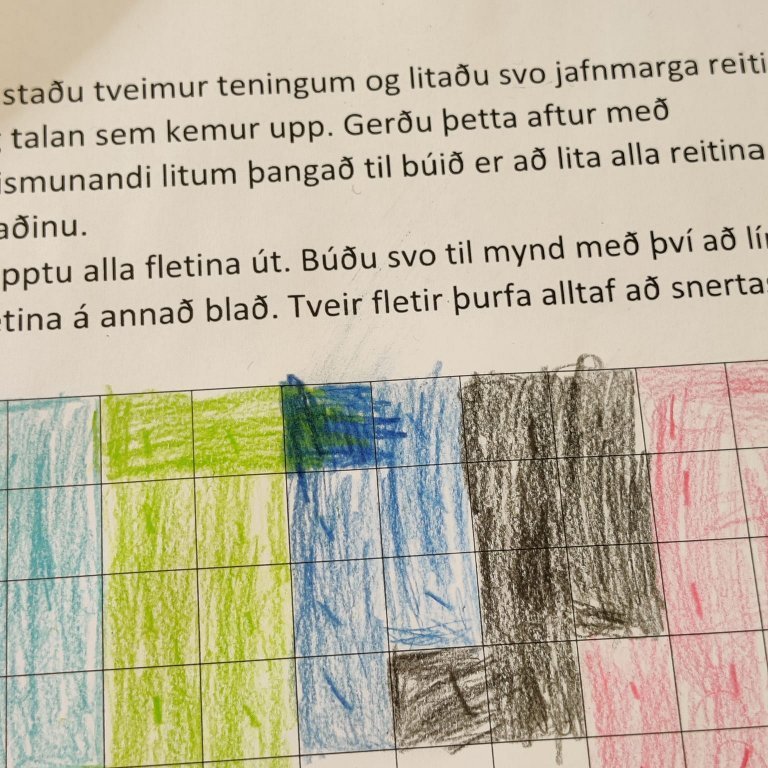 staðu tveimur teningum og litaðu svo jafnmarga reiti
talan sem kemur upp. Gerðu þetta aftur með
ismunandi litum þangað til búið er að lita alla reitina
aðinu.
pptu alla fletina út. Búðu svo til mynd með því að
tina á annað blað. Tveir fletir þurfa alltaf að snerta